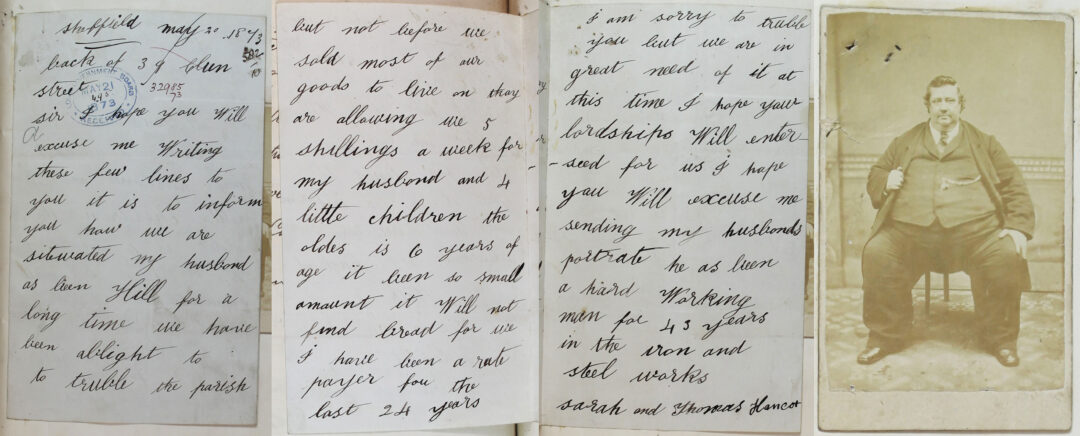 sheffield may 20 1873
back of 39 blun
street
GOVERNMENT BOARD
MAY 21
73
RECEIVED
32985
73
sir I hope you Will
excuse me Writing
these few lines to
you it is to inform
you how we are
sitewated my husbond
as been Hill for a
long time we have
been abblight to
to truble the parish
but not before we
sold most of our
goods to live on thay
are allowing we 5
shillings a week for
my husbond and 4
little children the
oldes is 6 years of
age it been so small
amount it Will not
find bread for we
I have been a rate
payer for the
last 24 years
I am sorry to truble
you but we are in
great need of it at
this time I hope your
lordships Will enter
-seed for us I hope
you Will excuse me
sending my husbonds
portrate he as been
a hard Working
man for 43 years
in the iron and
steel works
sarah and Thomas Hancot